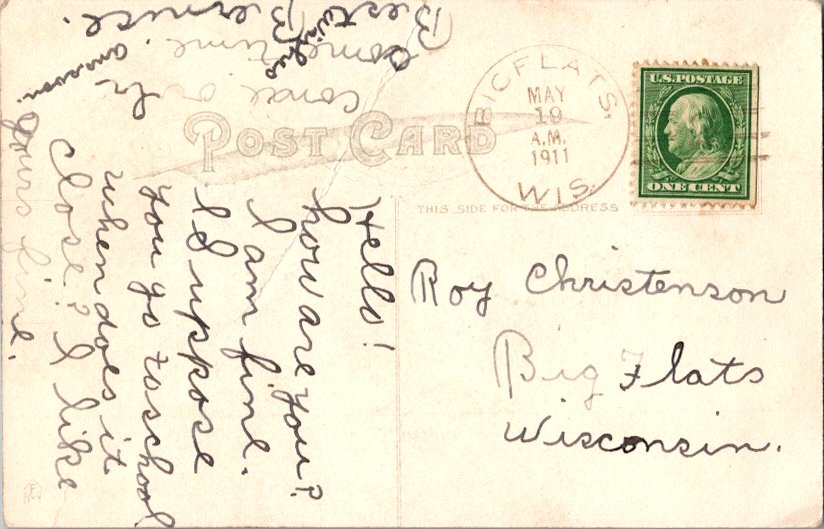 POST CARD
THIS SIDE FOR THE ADDRESS
BIG FLATS,
MAY
19
A.M.
1911
WIS.
U.S. POSTAGE
ONE CENT
Roy Christenson
Big Flats
Wisconsin.
Hello!
how are you?
I am fine.
I suppose
you go to school
when does it
close? I like
yours fine.
Answer.
come over
some time.
Best wishes
Bernice.